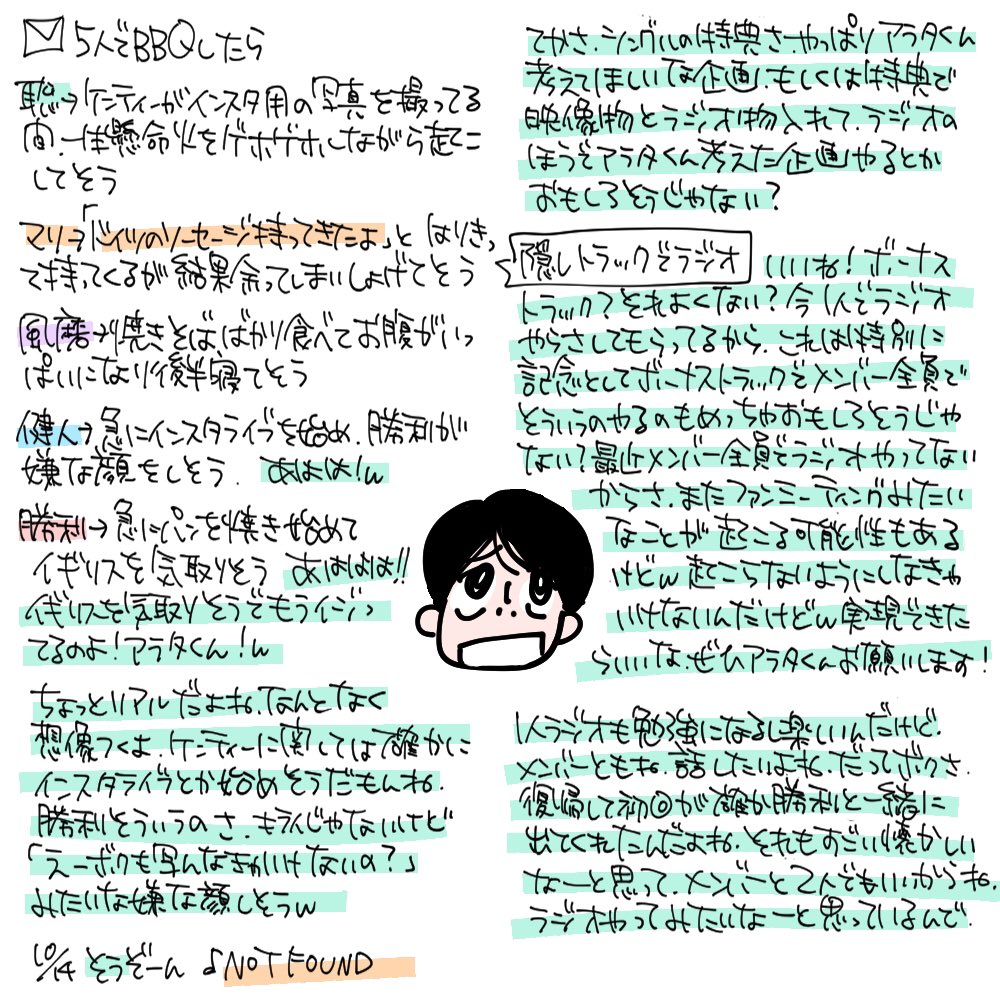 5人でBBQしたら
聡→ケンティーがインスタ用の写真を撮ってる
間、一生懸命火をゲホゲホしながら起こ
してそう
マリ→「ドイツのソーセージ持ってきたよ」と はりきっ
て持ってくるが結果余ってしまいしょげてそう
風磨→焼きそばばかり食べてお腹がいっ
ぱいになり後半寝てそう
健人→急にインスタライブを始め、勝利が
嫌な顔をしそう. あはは!w
勝利→急にパンを焼き始めて
イギリスを気取りそう あははは!!
イギリスを気取りそうでもうイジっ
てるのよ!アラタくん!w
ちょっとリアルだよね、なんとなく
想像つくよ ケンティーに関しては確かに
インスタライブとか始めそうだもんね.
勝利そういうのさ、もうイじゃないけど
「えーボクも写んなきゃいけないの?」
みたいな嫌な顔しそうw
10/14 そうぞーん ♪NOT FOUND
てかさ、シングルの特典さ、やっぱりアラタくん
考えてほしいな企画、もしくは特典で
映像物とラジオ物入れて、ラジオの
ほうでアラタくん考えた企画やるとか
おもしろそうじゃない?
隠しトラックでラジオ いいね!ボーナス
トラック?それよくない?今1人でラジオ
やらさしてもらってるから、これは特別に
記念としてボーナストラックでメンバー全員で
そういうのやるのもめっちゃおもしろそうじゃ
ない?最近メンバー全員でラジオやってない
からさ、またファンミーティングみたい
なことが起こる可能性もある
けどw起こらないようにしなきゃ
いけないんだけどw実現できた
らいいな、ぜひアラタくんお願いします!
1人ラジオも勉強になるし楽しいんだけど、
メンバーともね、話したいよね、だってボクさ、
復帰して初回が確か勝利と一緒に
出てくれたんだよね、それもすごい懐かしい
なーと思って、メンバーと2人でもいいからね、
ラジオやってみたいなーと思っているんで、